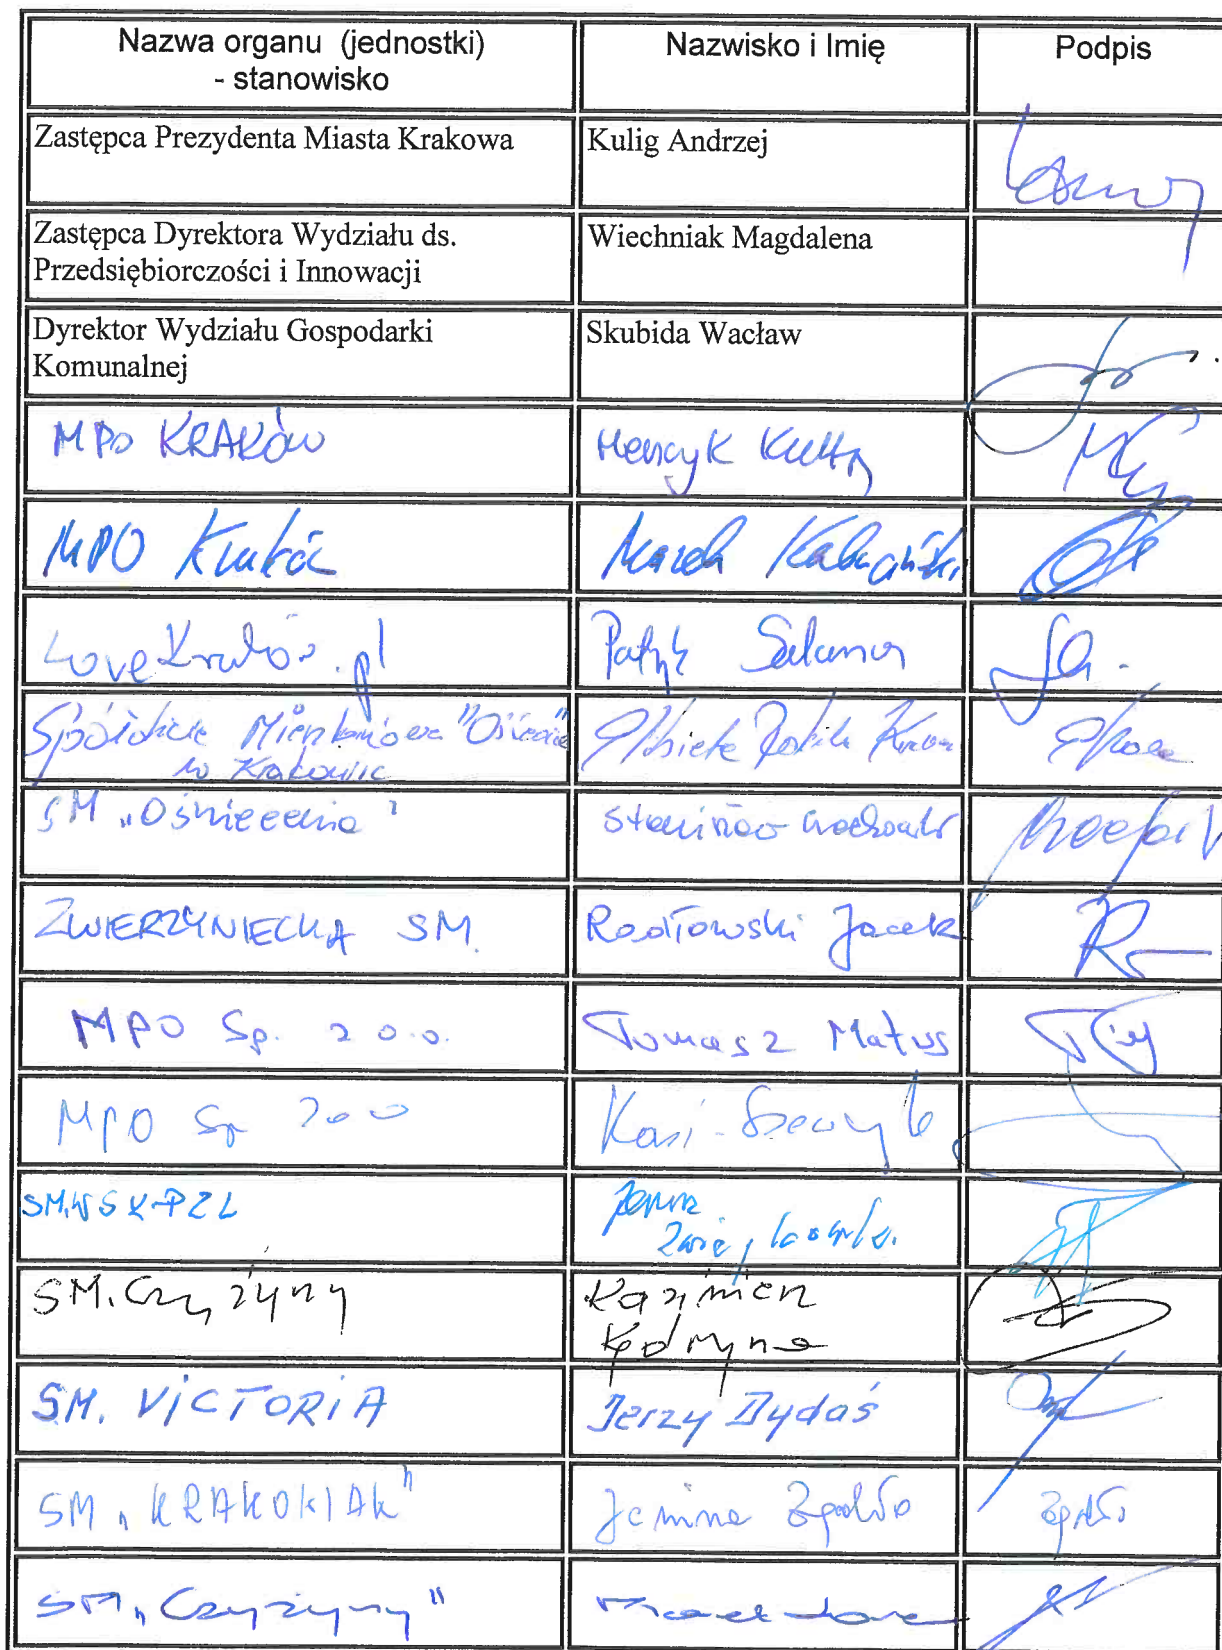 Nazwa organu (jednostki)
- stanowisko
Nazwisko i Imię
Podpis
Zastępca Prezydenta Miasta Krakowa
Kulig Andrzej
Zastępca Dyrektora Wydziału ds.
Przedsiębiorczości i Innowacji
Wiechniak Magdalena
Dyrektor Wydziału Gospodarki
Komunalnej
Skubida Wacław
MPO KRAKÓW
Henryk Kultys
MPO Kraków
Marek Kabaciński
LoveKraków.pl
Patryk Salamon
Spółdzielnia Mieszkaniowa "Oświecenia"
w Krakowie
Elżbieta
SM „Oświecenia"
Stanisław
ZWIERZYNIECKA SM.
Rodłowski Jacek
MPO Sp. z o.o.
Tomasz Matus
MPO Sp zoo
SM.WSK-PZL
SM. Czyżyny
Kazimierz
Kędryna
SM. VICTORIA
Jerzy Dydaś
SM „KRAKOWIAK"
Janina Zgodło
SM „Czyżyny"